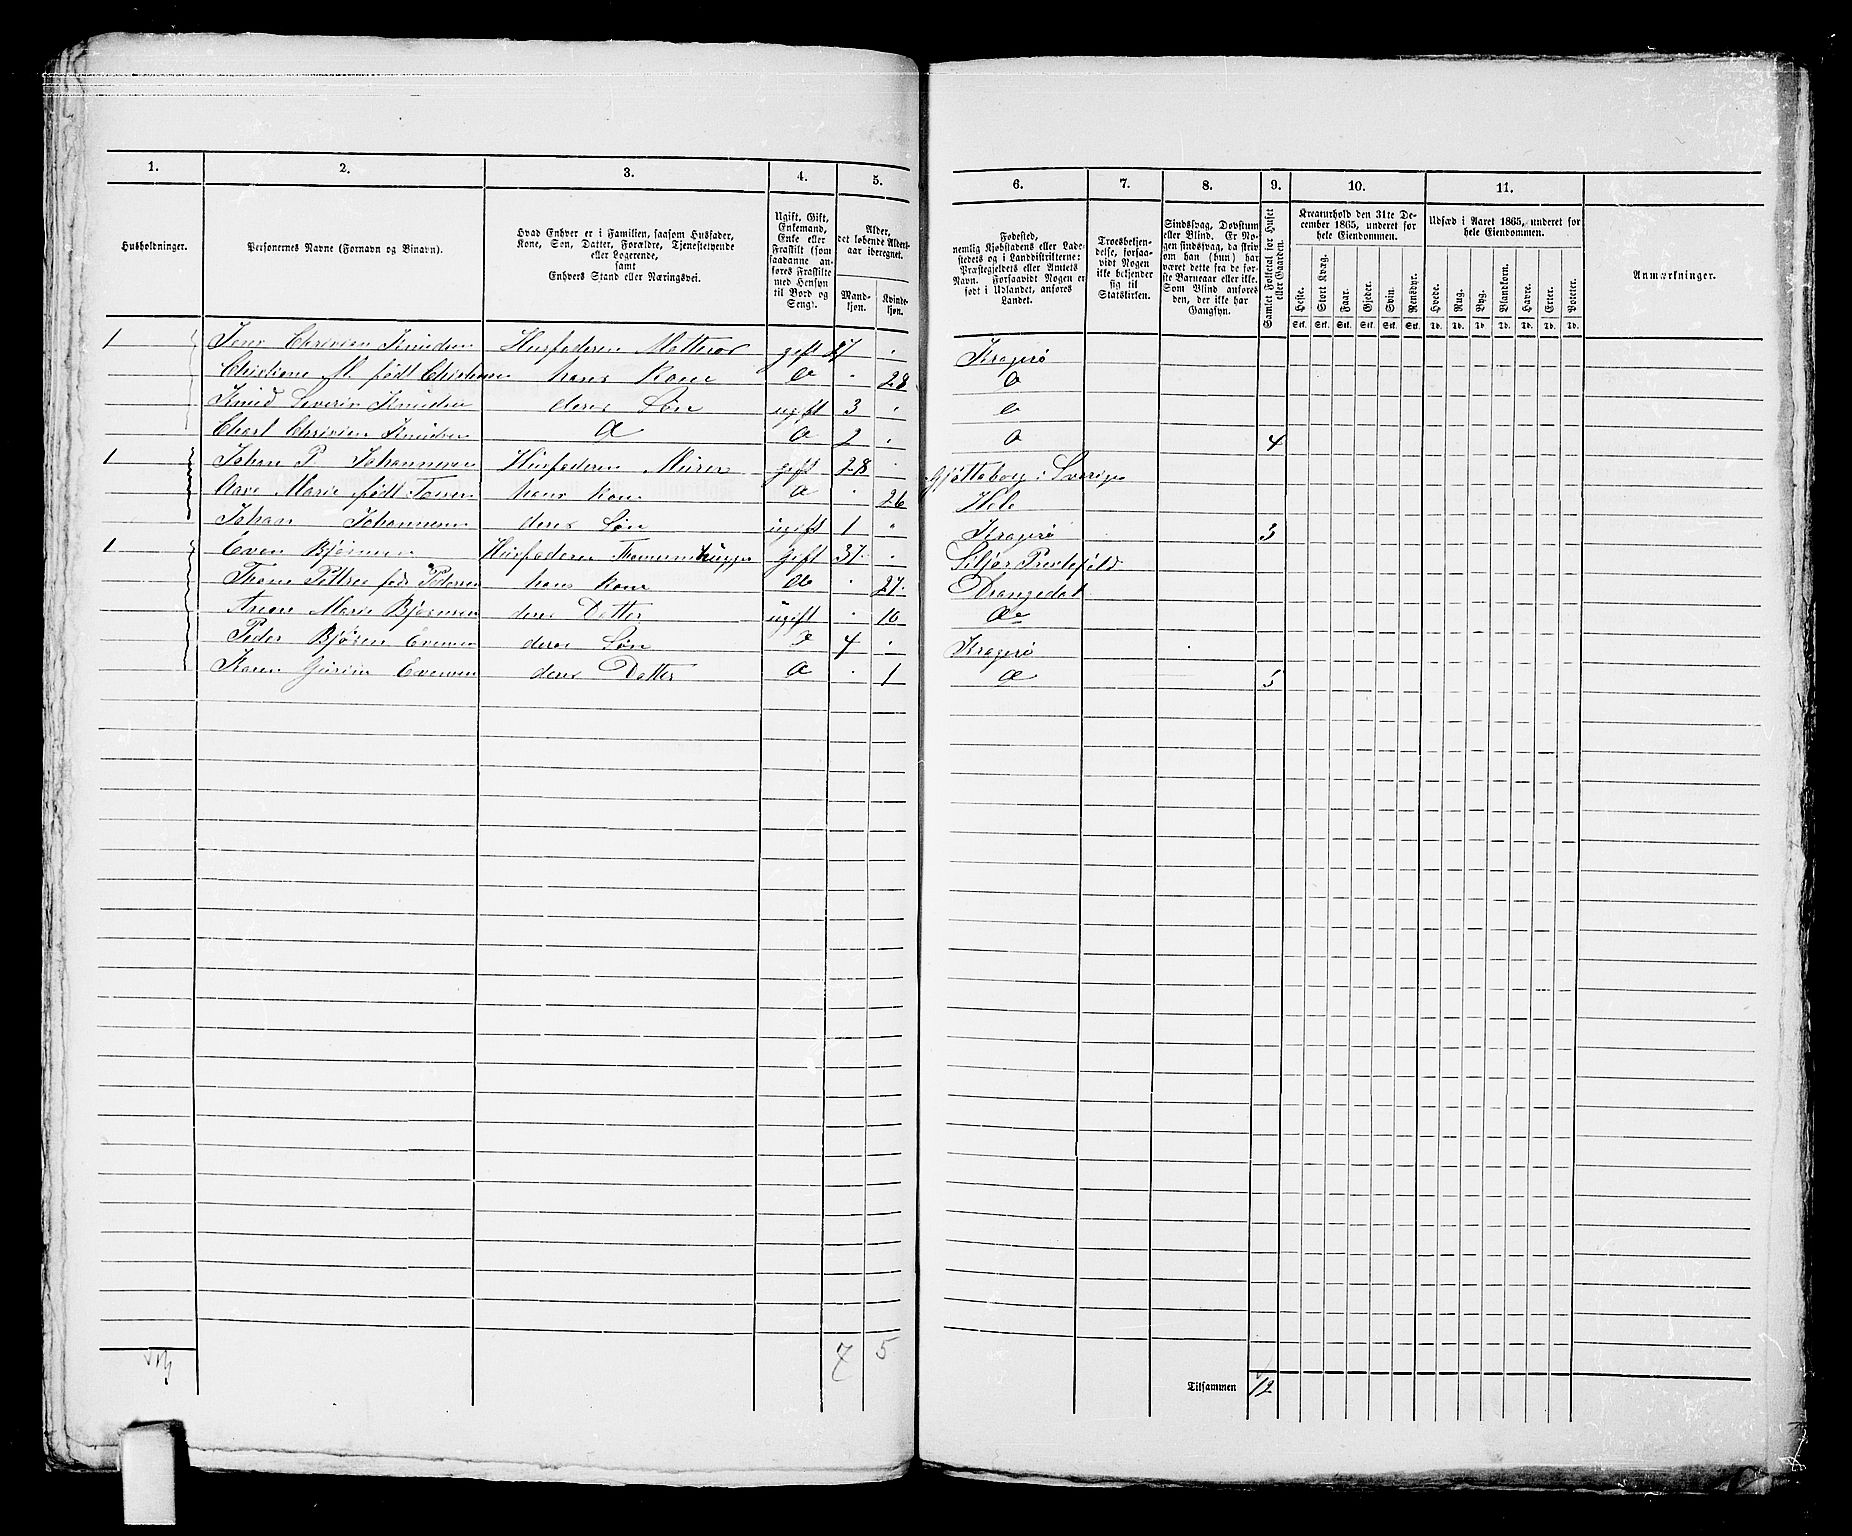 1. 2. 3. 4. 5. 6. 7. 8. 9. 10. 11.
Husholdninger.
Personernes Navne (Fornavn og Binavn).
Hvad Enhver er i Familien, saasom Husfader,
Kone, Søn, Datter, Forældre, Tjenestetyende
eller Logerende,
samt
Enhvers Stand eller Næringsvei.
Ugift, Gift,
Enkemand,
Enke eller
Fraskilt (som
saadanne an-
føres Fraskilte
med Hensyn
til Bord og
Seng).
Alder,
det løbende Alders-
aar iberegnet.
Mand-
kjøn.
Kvinde-
kjøn.
Fødested,
nemlig Kjøbstadens eller Lade-
stedets og i Landdistrikterne:
Præstegjeldets eller Amtets
Navn. Forsaavidt Nogen er
født i Udlandet, anføres
Landet.
Troesbekjen-
delse, forsaa-
vidt Nogen
ikke bekjender
sig til
Statskirken.
Sindssvag, Døvstum
eller Blind. Er No-
gen sindssvag, da skriv
om han (hun) har
været dette fra de før-
ste Barneaar eller ikke.
Som Blind anføres
den, der ikke har
Gangsyn.
Samlet Folketal for Huset
eller Gaarden.
Kreaturhold den 31te De-
cember 1865, underet for
hele Eiendommen.
Heste. Stort Kvæg. Faar. Gjeder. Svin. Rensdyr.
Stk. Stk. Stk. Stk. Stk. Stk.
Udsæd i Aaret 1865, underet for
hele Eiendommen.
Hvede. Rug. Byg. Blandkorn. Havre. Erter. Poteter.
Td. Td. Td. Td. Td. Td. Td.
Anmærkninger.
1 Jens Christen Knudsen Husfaderen Matteros gift 27 . Kragerø
Christiane M. født Christensen hans Kone do . 28 do
Knud Severin Knudsen deres Søn ugift 3 . do
Charl Christen Knudsen do do 2 . do 4
1 Johan P. Johannesen Husfaderen Murer gift 28 . Gjøtteborg i Sverige
Marie født hans Kone do . 26
Johan Johannesen deres Søn ugift 1 " Kragerø 3
1 Even Bjørnsen Husfaderen gift 37 . Siljør Prestefjeld
født Pedersen hans Kone do . 27 Drangedal
Marie Bjørnsen deres Datter ugift . 10 do
Peder Bjørn Evensen deres Søn do 4 . Kragerø
Karen Evensen deres Datter do . 1 do 5
7 5
Tilsammen 12